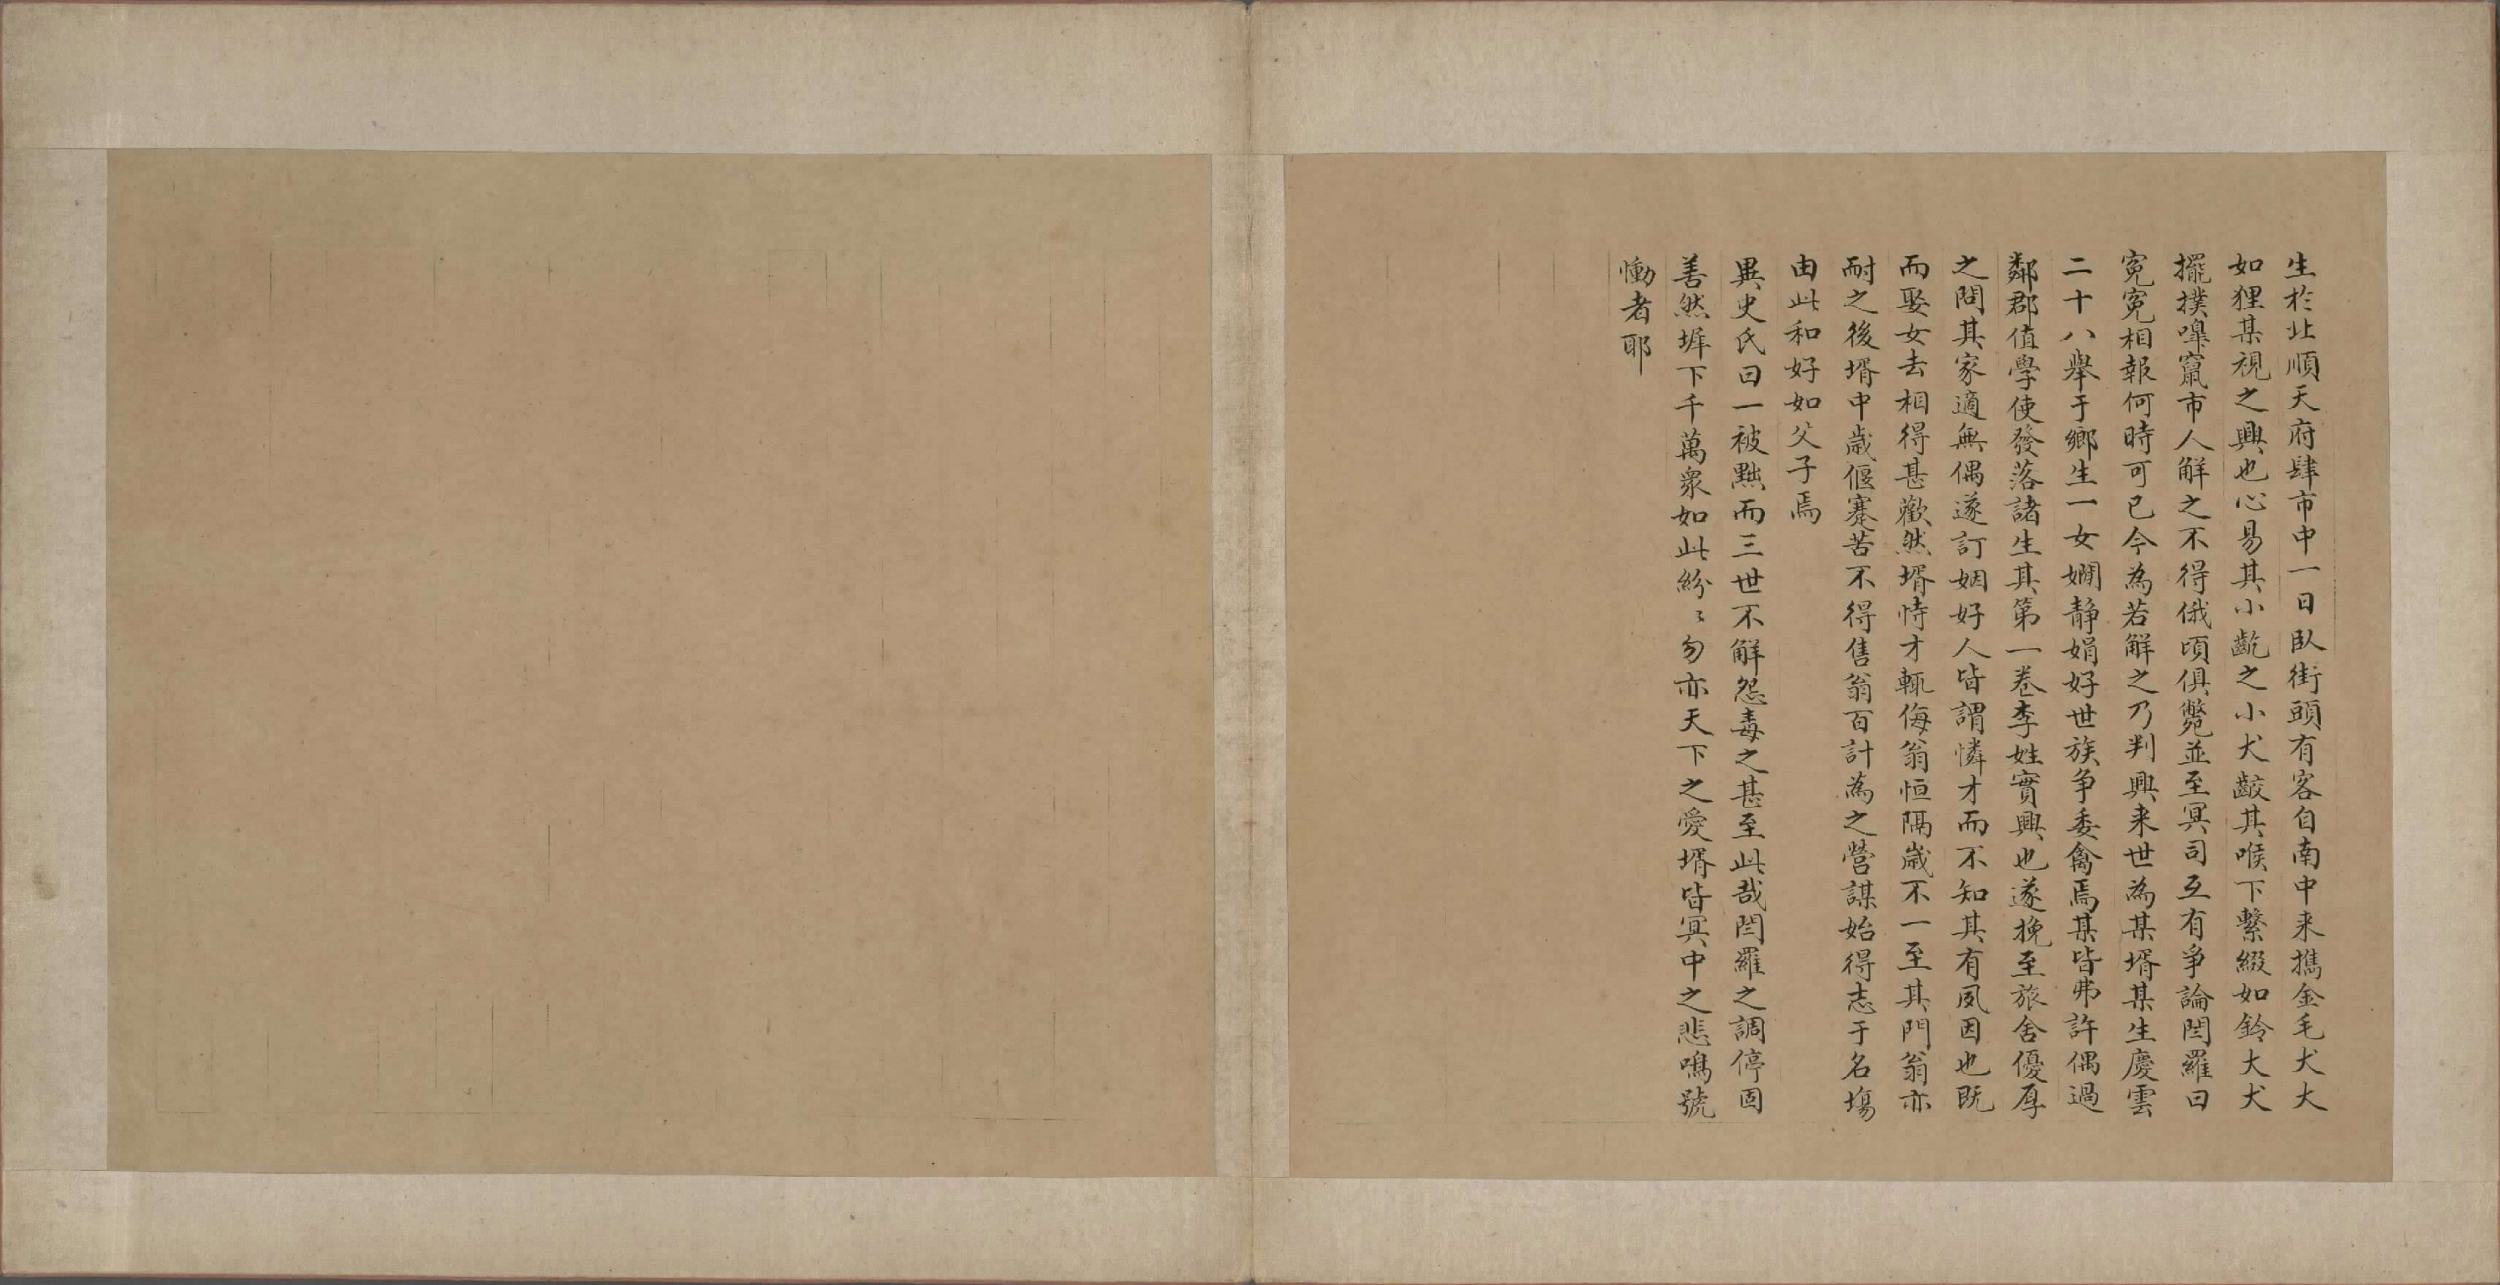 生於北順天府肆市中一日臥街頭有客自南中来攜金毛犬大
如狸某視之興也心易其小齕之小犬齩其喉下繫綴如鈴大犬
擺撲嘷竄市人解之不得俄頃俱斃並至冥司互有爭論閻羅曰
寃寃相報何時可已今為若解之乃判興来世為某壻某生慶雲
二十八舉于鄉生一女嫻靜娟好世族爭委禽焉某皆弗許偶過
鄰郡值學使發落諸生其第一卷李姓實興也遂挽至旅舍優厚
之問其家適無偶遂訂姻好人皆謂憐才而不知其有夙因也既
而娶女去相得甚歡然壻恃才輒侮翁恒隔歲不一至其門翁亦
耐之後壻中歲偃蹇苦不得售翁百計為之營謀始得志于名塲
由此和好如父子焉
異史氏曰一被黜而三世不解怨毒之甚至此哉閻羅之調停固
善然墀下千萬衆如此紛〻勿亦天下之愛壻皆冥中之悲鳴號
慟者耶